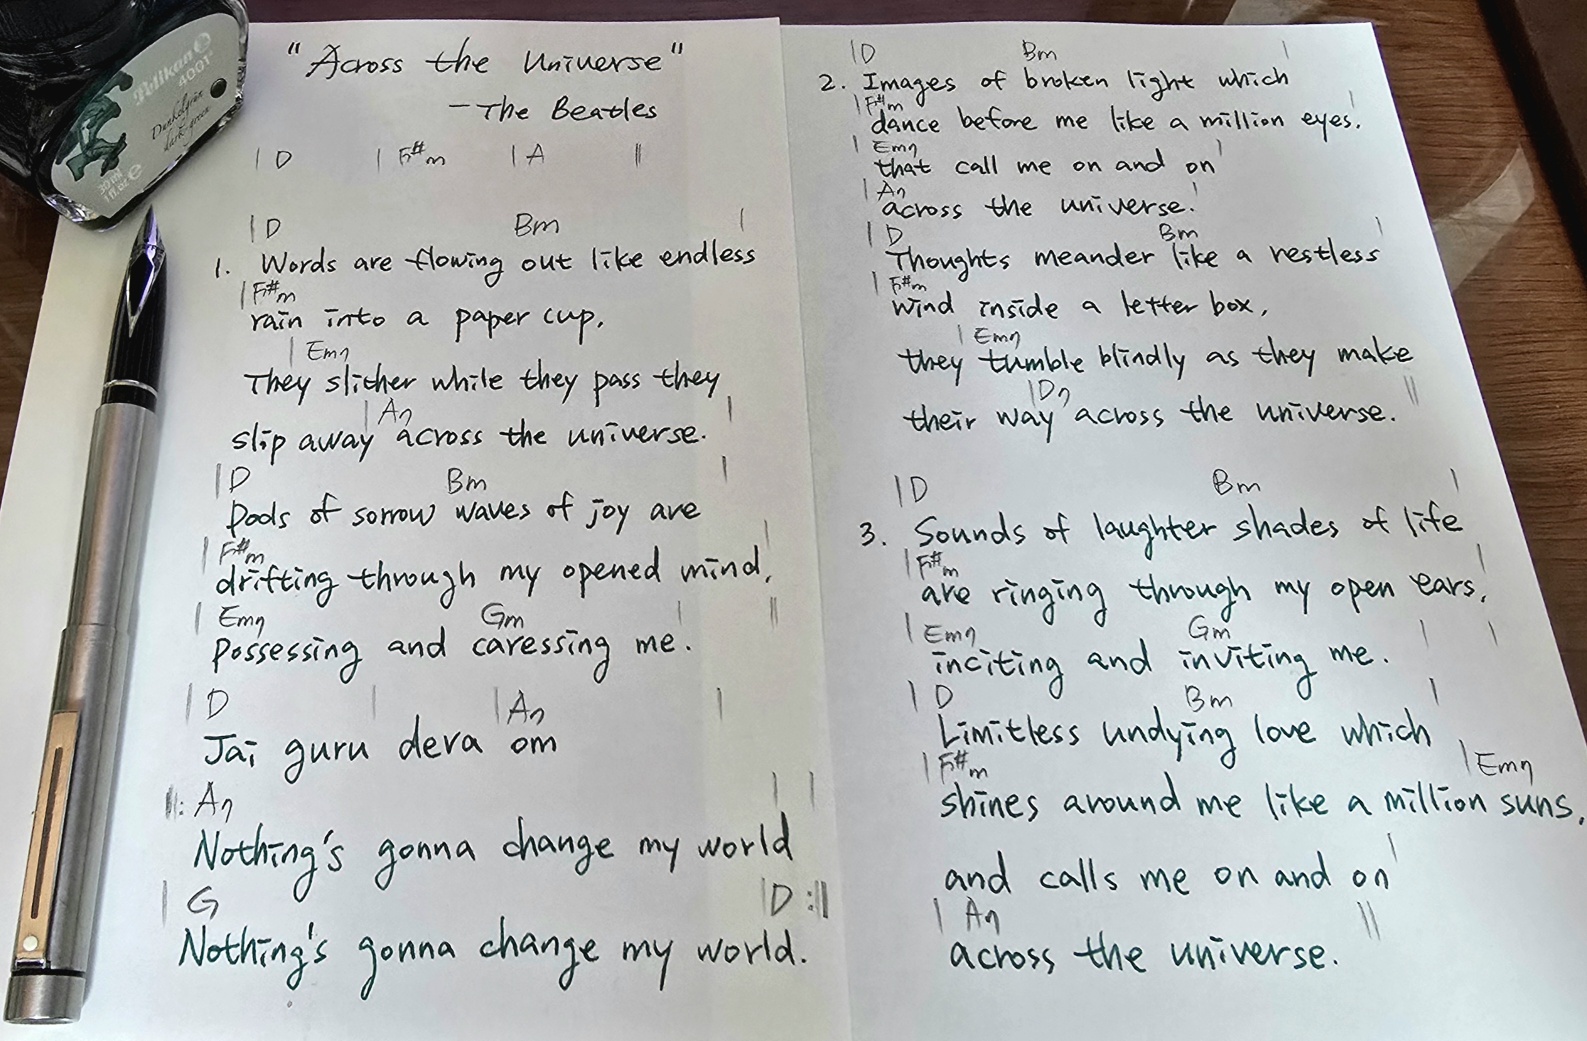 Pelikan
4001
Dunkelgrün
dark-green
30 ml e
1 fl.oz
"Across the Universe"
– The Beatles
| D | F#m | A ||
| D Bm |
1. Words are flowing out like endless
| F#m
rain into a paper cup.
| Em7
They slither while they pass they
| A7 |
slip away across the universe.
| D Bm |
Pools of sorrow waves of joy are
| F#m |
drifting through my opened mind,
| Em7 Gm | ||
Possessing and caressing me.
| D | | A7 |
Jai guru deva om
||: A7 | |
Nothing's gonna change my world
| G | D :||
Nothing's gonna change my world.
| D Bm |
2. Images of broken light which
| F#m |
dance before me like a million eyes.
| Em7 |
that call me on and on
| A7 |
across the universe.
| D Bm |
Thoughts meander like a restless
| F#m
wind inside a letter box,
| Em7
they tumble blindly as they make
| D7 ||
their way across the universe.
| D Bm |
3. Sounds of laughter shades of life
| F#m |
are ringing through my open ears,
| Em7 Gm | |
inciting and inviting me.
| D Bm |
Limitless undying love which
| F#m | Em7
shines around me like a million suns,
|
and calls me on and on
| A7 ||
across the universe.